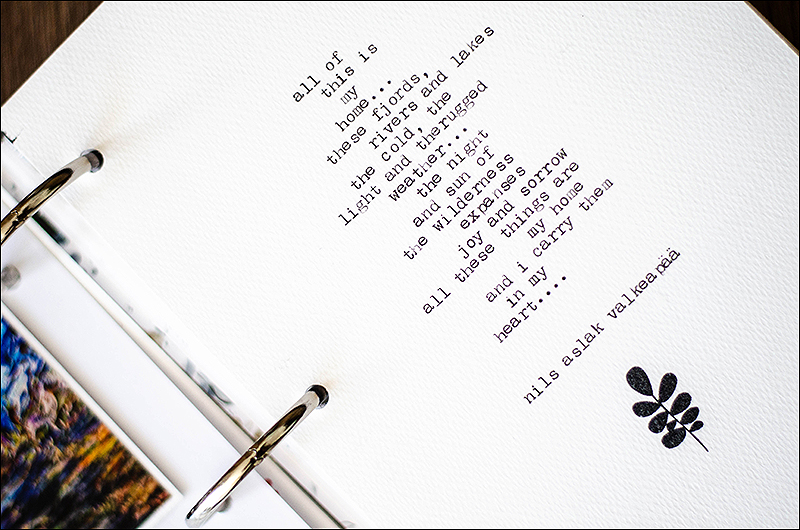 all of
this is
my
home...
these fjords,
rivers and lakes
the cold, the
light and therugged
weather...
the night
and sun of
the wilderness
expanses
joy and sorrow
all these things are
my home
and i carry them
in my
heart....
nils aslak valkeapää